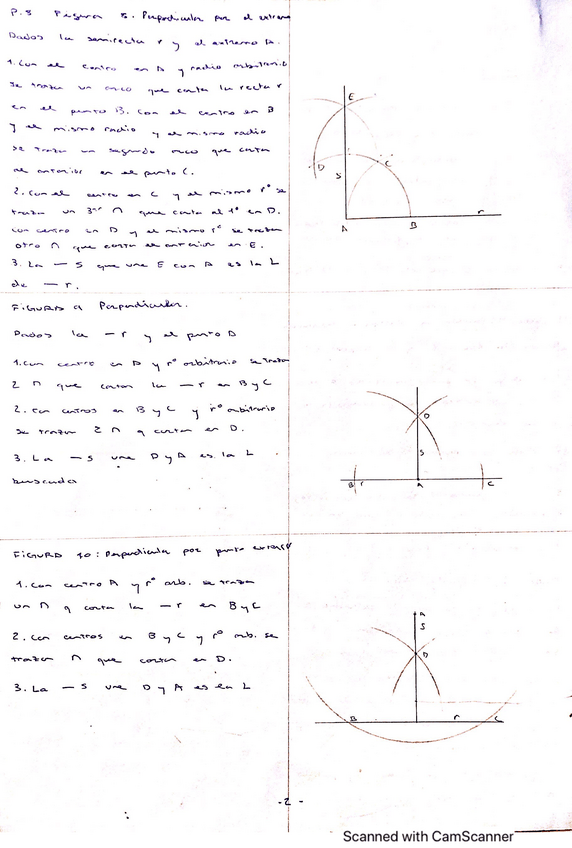 P.3 Figura 8. Perpendicular por el extremo
Dados la semirecta r y el extremo A.
1. Con el centro en A y radio arbitrario
se traza un arco que corta la recta r
en el punto B. Con el centro en B
y el mismo radio y el mismo radio
se traza un segundo arco que corta
al anterior en el punto C.
2. Con el centro en C y el mismo rº se
traza un 3er ∩ que corta al 1º en D.
Con centro en D y el mismo rº se trazan
otro ∩ que corta el anterior en E.
3. La — s que une E con A es la L
de — r.
E
D
C
S
A
B
r
FIGURA 9 Perpendicular.
Dados la — r y el punto A
1. Con centro en A y rº arbitrario se trazan
2 ∩ que cortan la — r en B y C
2. Con centros en B y C y rº arbitrario
se trazan 2 ∩ q cortan en D.
3. La — s une D y A es la L
buscada
D
S
B
r
A
C
FIGURA 10: Perpendicular por punto
1. Con centro A y rº arb. se traza
un ∩ q corta la — r en B y C
2. Con centros en B y C y rº arb. se
trazan ∩ que cortan en D.
3. La — s une D y A es la L
A
S
D
B
r
C
-2-
Scanned with CamScanner